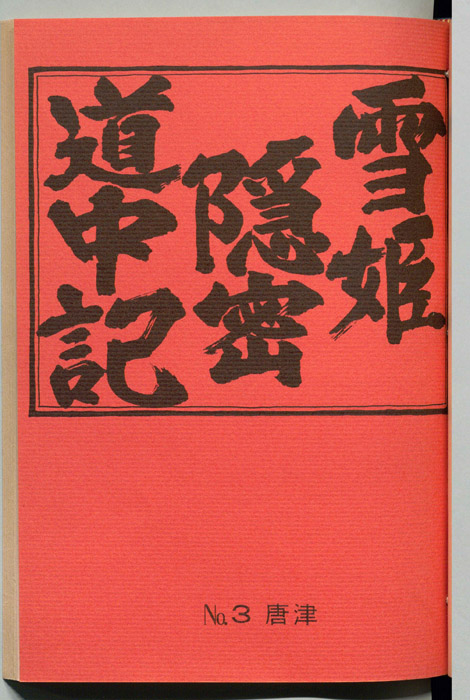 雪姫
隠密
道中記
No.3 唐津